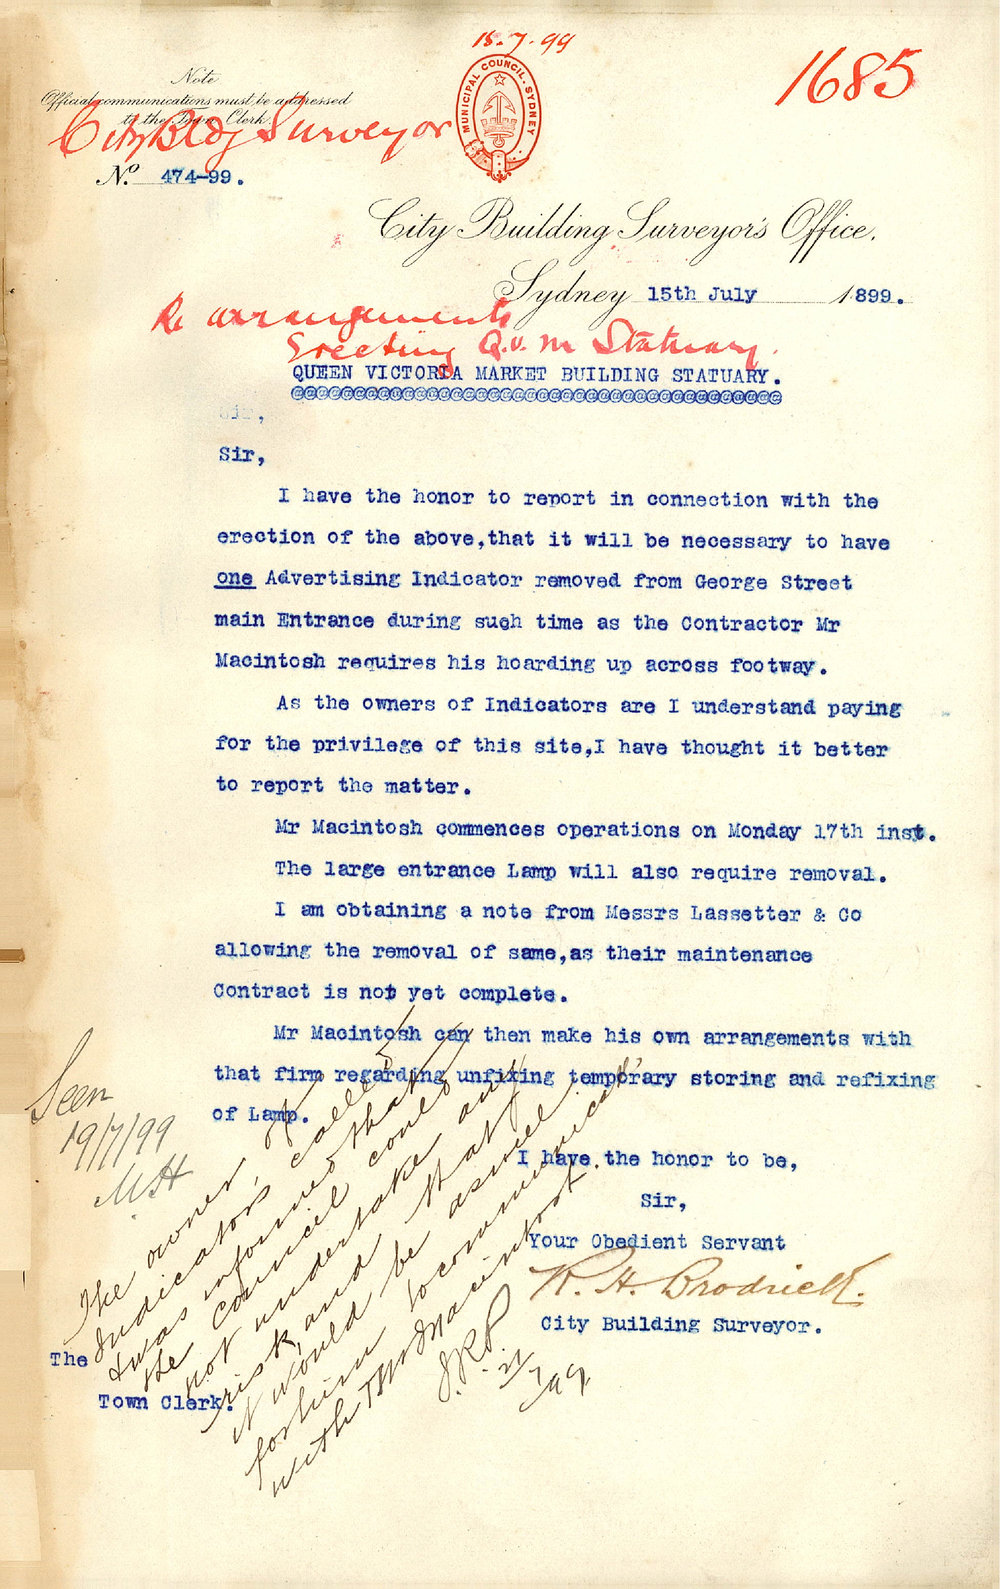 15.7.99
1685
Note
Official communications must be addressed
to the Town Clerk.
City Bldg Surveyor
MUNICIPAL COUNCIL·SYDNEY
No. 474-99.
City Building Surveyor's Office.
Sydney 15th July 1899.
Re arrangements
Erecting Q.V.M Statuary.
QUEEN VICTORIA MARKET BUILDING STATUARY.
@@@@@@@@@@@@@@@@@@@@@@@@@@@@@@@@@@@@@@@@
Sir,
Sir,
I have the honor to report in connection with the
erection of the above,that it will be necessary to have
one Advertising Indicator removed from George Street
main Entrance during such time as the Contractor Mr
Macintosh requires his hoarding up across footway.
As the owners of Indicators are I understand paying
for the privilege of this site,I have thought it better
to report the matter.
Mr Macintosh commences operations on Monday 17th inst.
The large entrance Lamp will also require removal.
I am obtaining a note from Messrs Lassetter & Co
allowing the removal of same,as their maintenance
Contract is not yet complete.
Mr Macintosh can then make his own arrangements with
that firm regarding unfixing temporary storing and refixing
of Lamp.
I have the honor to be,
Sir,
Your Obedient Servant
R. H. Brodrick.
City Building Surveyor.
The
Town Clerk.
Seen
19/7/99
The owner of
Indicators called
& was informed that
the Council could
not undertake any
risk, and that
it would be as well
for him to communicate
with Mr Macintosh.
21/7/99